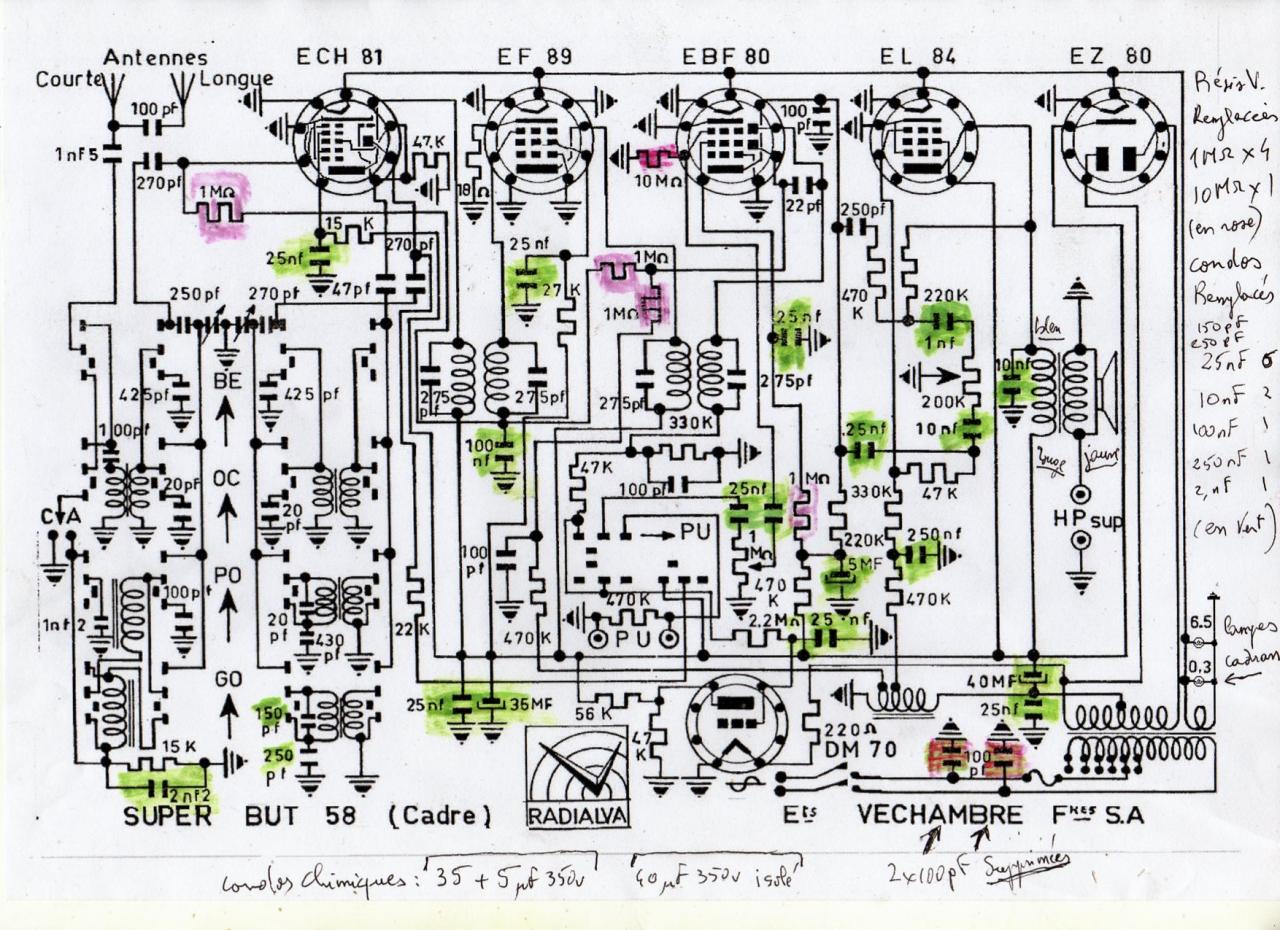 Antennes
Courte
Longue
ECH 81
EF 89
EBF 80
EL 84
EZ 80
100 pf
1nF5
270pf
1MΩ
15 K
25nf
47K
270 pf
47pf
18Ω
25 nf
27K
10 MΩ
1MΩ
1MΩ
100 pf
22pf
250pf
470 K
220K
1nf
200K
10 nf
10 nf
bleu
rouge
jaune
HP sup
250 pf
270 pf
BE
425pf
425 pf
100pf
OC
20pf
20 pf
CVA
PO
100pf
1nf 2
20 pf
430 pf
GO
150 pf
250 pf
15 K
2nf2
275 pf
275pf
100 nf
275pf
275pf
25nf
330K
47K
100 pf
PU
25nf
1 MΩ
1 MΩ
470 K
.25nf
330K
47 K
220K
5MF
250nf
470K
22K
100 pf
470K
470K
PU
2.2MΩ
25 nf
25nf
35MF
56 K
47 K
220Ω
DM 70
40MF
25nf
100 pf
6.5
0,3
SUPER BUT 58 (Cadre)
RADIALVA
Ets VECHAMBRE Fres S.A
Résis V.
Remplacées
1MΩ x 4
10MΩ x 1
(en rose)
condos
Remplacés
150 pF
250 pF
25nF 6
10nF 2
100nF 1
250nF 1
2,nF 1
(en vert)
lampes
cadran
condos chimiques : 35 + 5 µf 350v
40 µF 350v isolé
2x100pF Supprimées